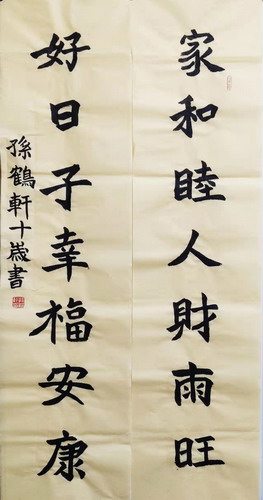 家和睦人財雨旺
好日子幸福安康
孫鶴軒十歲書